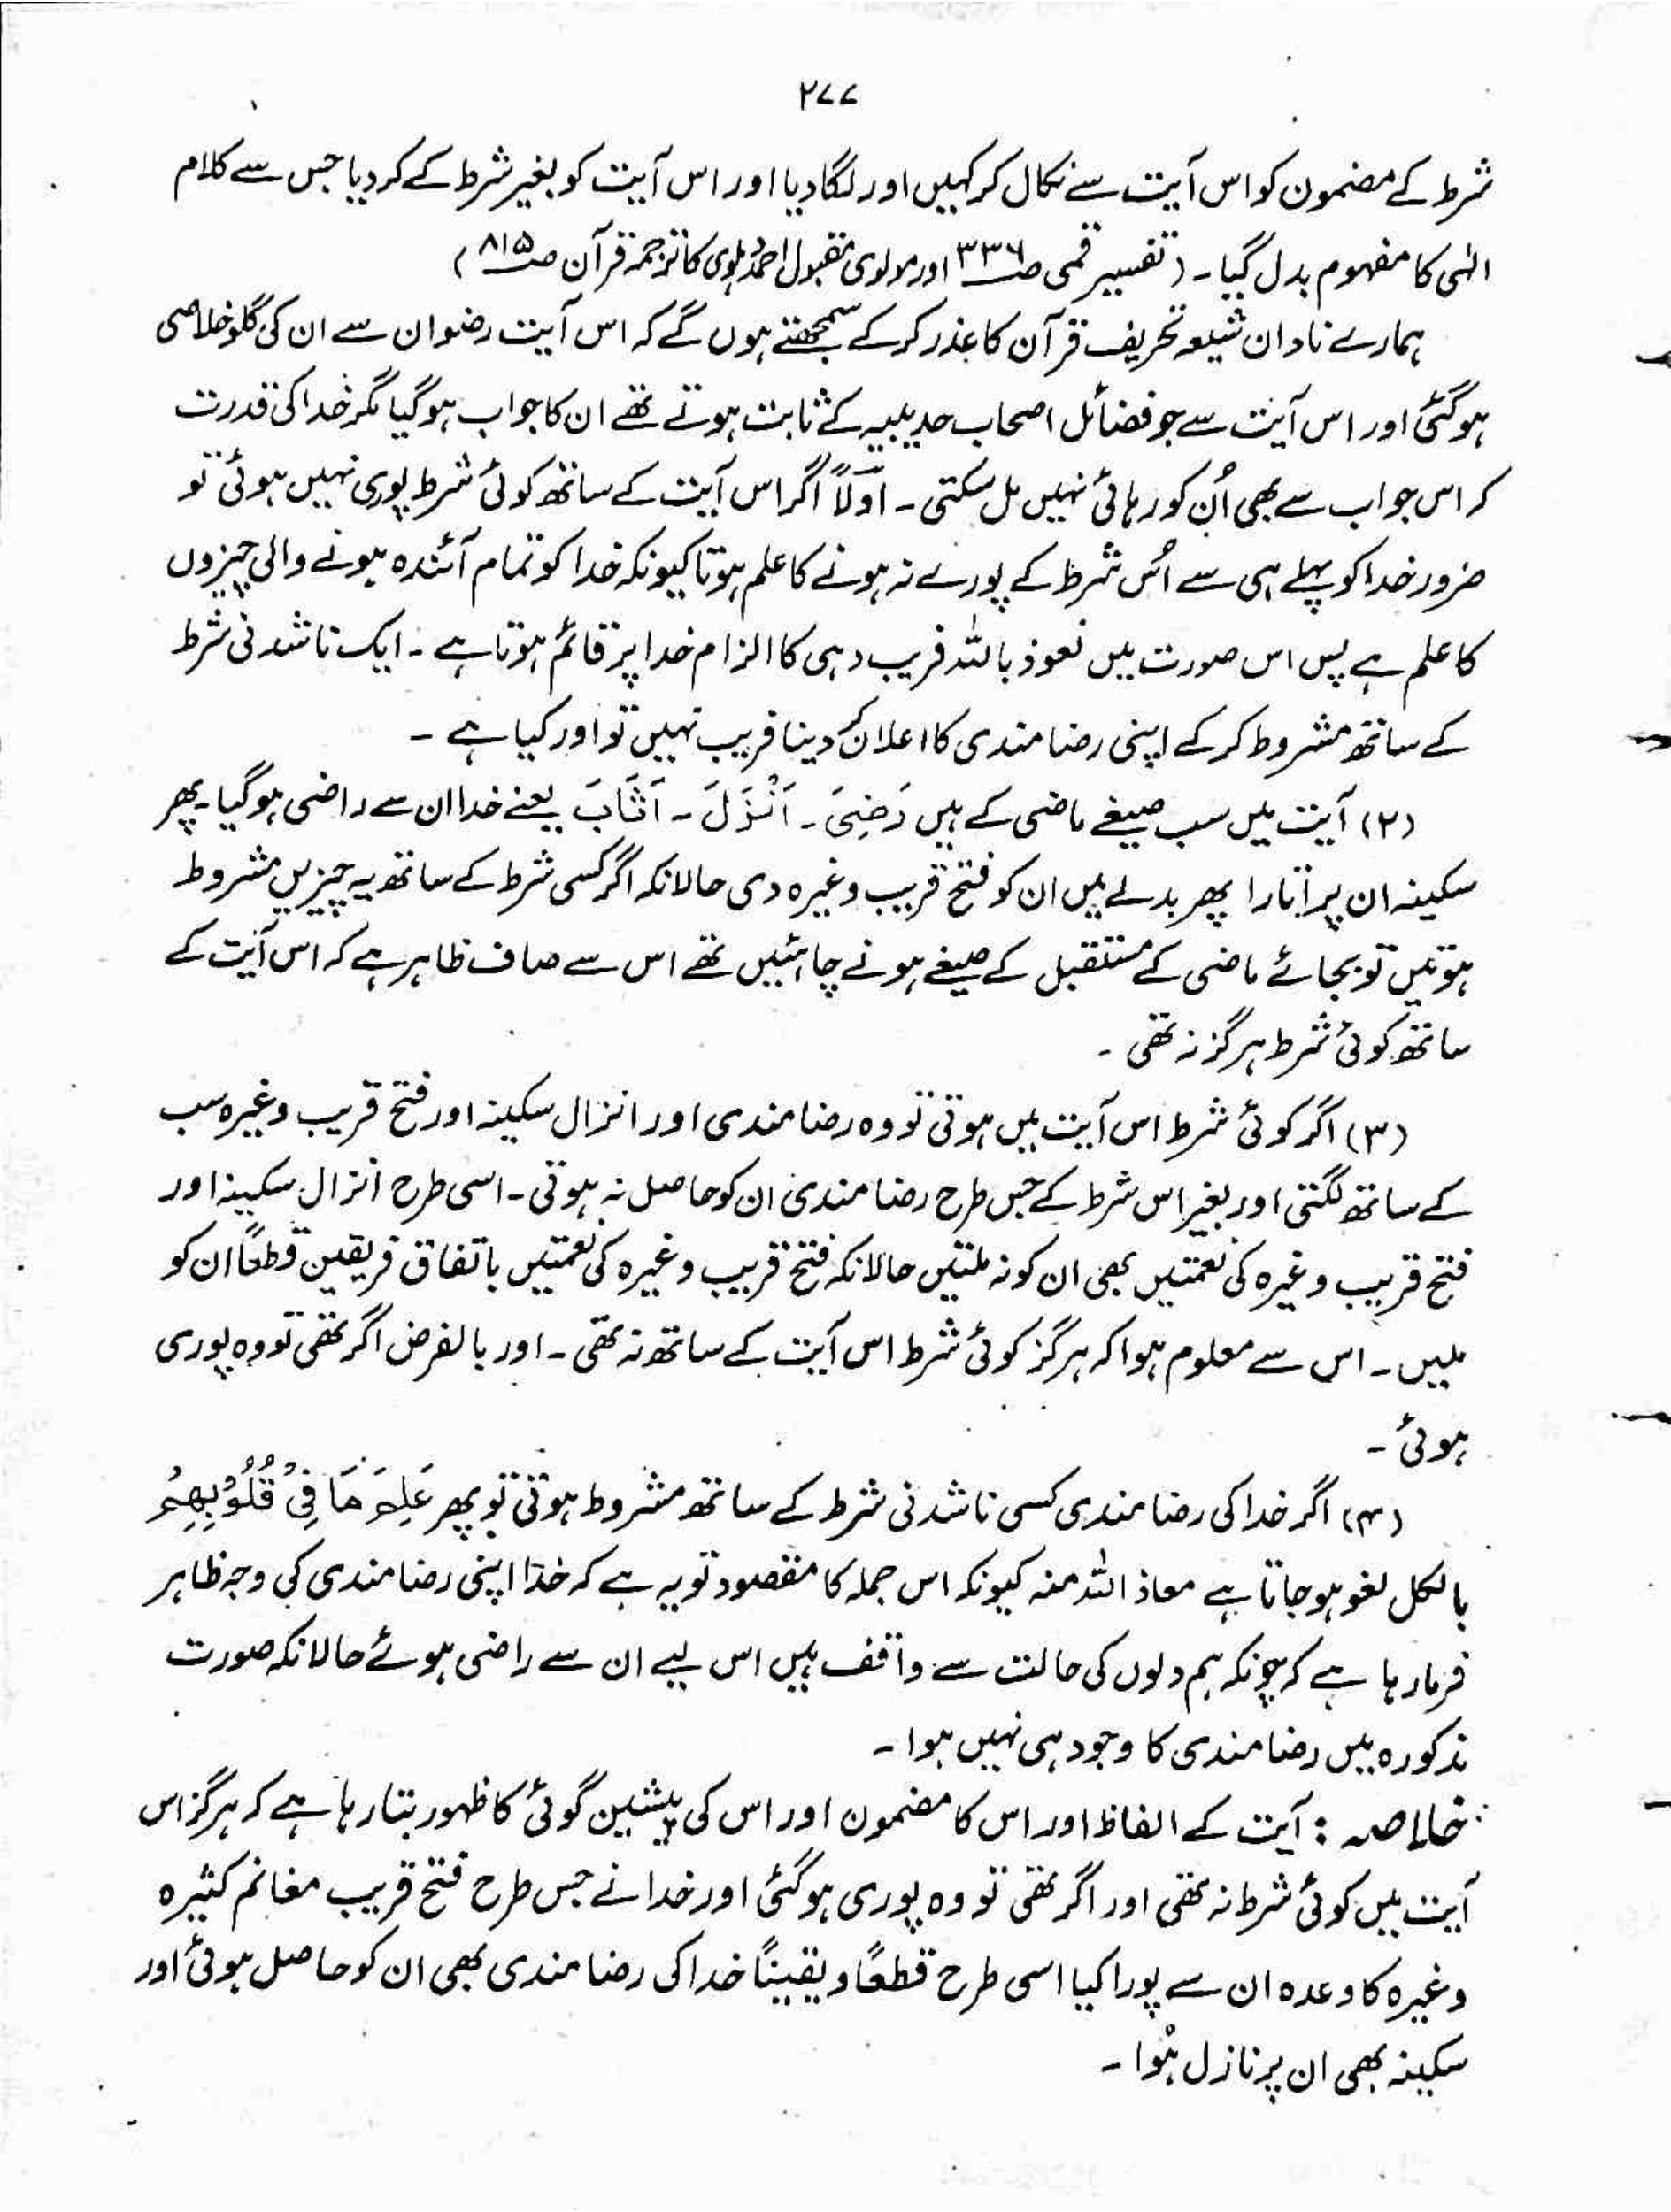 ۲۷۷
شرط کے مضمون کو اس آیت سے نکال کر کہیں اور لگا دیا اور اس آیت کو بغیر شرط کے کر دیا جس سے کلام
الٰہی کا مفہوم بدل گیا۔ (تفسیر قمی صـ۳۳۶ اور مولوی مقبول احمد دہلوی کا ترجمہ قرآن صـ۸۱۵)
ہمارے نادان شیعہ تحریف قرآن کا عذر کر کے سمجھتے ہوں گے کہ اس آیت رضوان سے ان کی گلو خلاصی
ہو گئی اور اس آیت سے جو فضائل اصحاب حدیبیہ کے ثابت ہوتے تھے ان کا جواب ہو گیا مگر خدا کی قدرت
کہ اس جواب سے بھی اُن کو رہائی نہیں مل سکتی۔ اوّلاً اگر اس آیت کے ساتھ کوئی شرط پوری نہیں ہوئی تو
ضرور خدا کو پہلے ہی سے اُس شرط کے پورے نہ ہونے کا علم ہوتا کیونکہ خدا کو تمام آئندہ ہونے والی چیزوں
کا علم ہے پس اس صورت میں نعوذ باللہ فریب دہی کا الزام خدا پر قائم ہوتا ہے۔ ایک ناشدنی شرط
کے ساتھ مشروط کر کے اپنی رضا مندی کا اعلان دینا فریب نہیں تو اور کیا ہے۔
(۲) آیت میں سب صیغے ماضی کے ہیں رَضِیَ۔ اَنْزَلَ۔ اَثَابَ یعنے خدا ان سے راضی ہو گیا۔ پھر
سکینہ ان پر اتارا پھر بدلے میں ان کو فتح قریب وغیرہ دی حالانکہ اگر کسی شرط کے ساتھ یہ چیزیں مشروط
ہوتیں تو بجائے ماضی کے مستقبل کے صیغے ہونے چاہئیں تھے اس سے صاف ظاہر ہے کہ اس آیت کے
ساتھ کوئی شرط ہرگز نہ تھی۔
(۳) اگر کوئی شرط اس آیت میں ہوتی تو وہ رضا مندی اور انزال سکینہ اور فتح قریب وغیرہ سب
کے ساتھ لگتی اور بغیر اس شرط کے جس طرح رضا مندی ان کو حاصل نہ ہوتی۔ اسی طرح انزال سکینہ اور
فتح قریب وغیرہ کی نعمتیں بھی ان کو نہ ملتیں حالانکہ فتح قریب وغیرہ کی نعمتیں باتفاق فریقین قطعاً ان کو
ملیں۔ اس سے معلوم ہوا کہ ہرگز کوئی شرط اس آیت کے ساتھ نہ تھی۔ اور بالفرض اگر تھی تو وہ پوری
ہوئی۔
(۴) اگر خدا کی رضا مندی کسی ناشدنی شرط کے ساتھ مشروط ہوتی تو پھر عَلِمَ مَا فِیْ قُلُوْبِهِمْ
بالکل لغو ہو جاتا ہے معاذ اللہ منہ کیونکہ اس جملہ کا مقصود تو یہ ہے کہ خدا اپنی رضا مندی کی وجہ ظاہر
فرما رہا ہے کہ چونکہ ہم دلوں کی حالت سے واقف ہیں اس لیے ان سے راضی ہوئے حالانکہ صورت
مذکورہ میں رضا مندی کا وجود ہی نہیں ہوا۔
خلاصہ : آیت کے الفاظ اور اس کا مضمون اور اس کی پیشین گوئی کا ظہور بتا رہا ہے کہ ہرگز اس
آیت میں کوئی شرط نہ تھی اور اگر تھی تو وہ پوری ہو گئی اور خدا نے جس طرح فتح قریب مغانم کثیرہ
وغیرہ کا وعدہ ان سے پورا کیا اسی طرح قطعاً و یقیناً خدا کی رضا مندی بھی ان کو حاصل ہوئی اور
سکینہ بھی ان پر نازل ہُوا۔